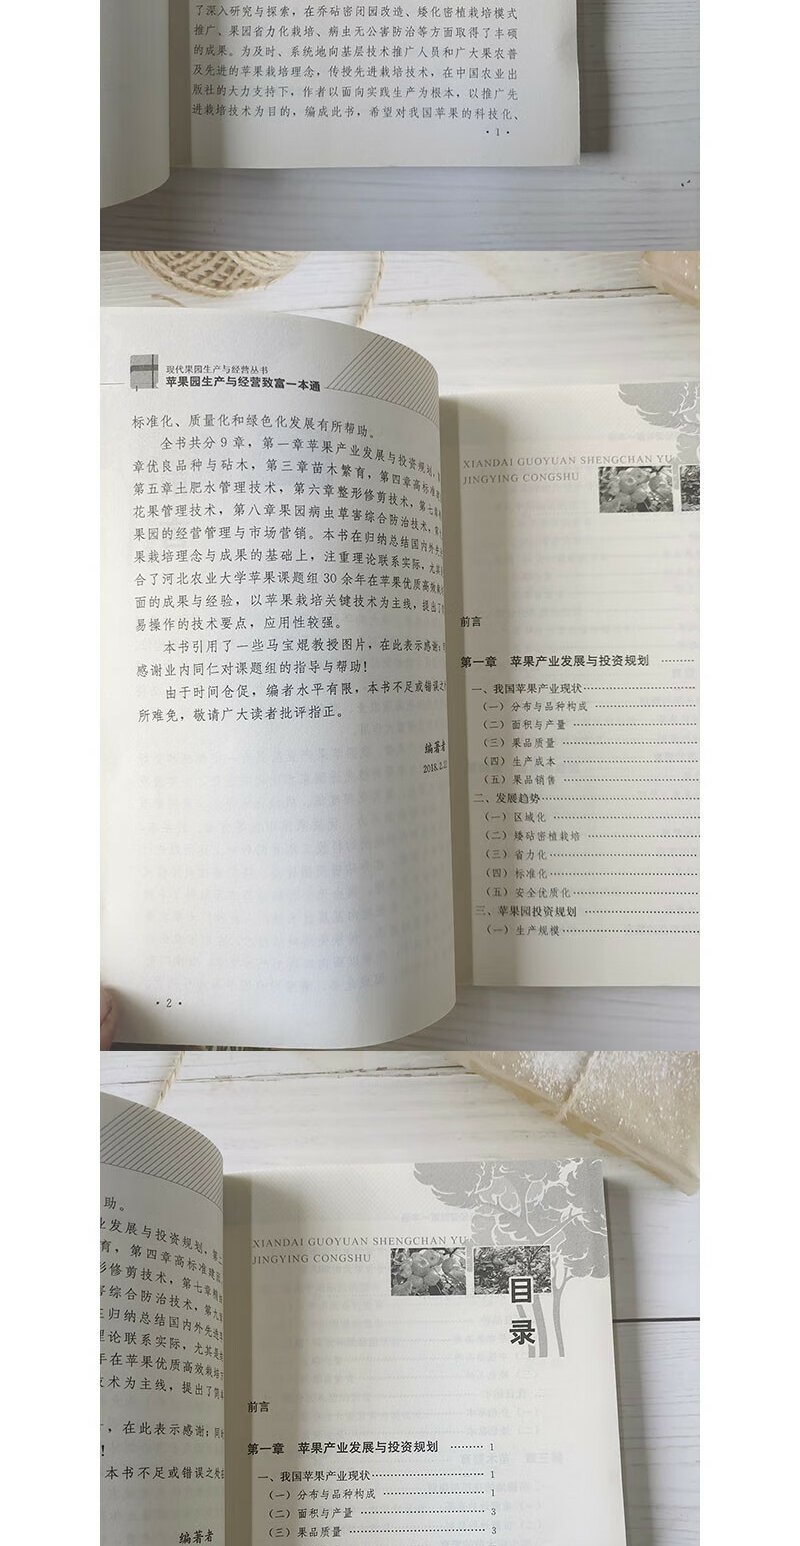 了深入研究与探索，在乔砧密闭园改造、矮化密植栽培模式
推广、果园省力化栽培、病虫无公害防治等方面取得了丰硕
的成果。为及时、系统地向基层技术推广人员和广大果农普
及先进的苹果栽培理念，传授先进栽培技术，在中国农业出
版社的大力支持下，作者以面向实践生产为根本，以推广先
进栽培技术为目的，编成此书，希望对我国苹果的科技化、
·1·
现代果园生产与经营丛书
苹果园生产与经营致富一本通
标准化、质量化和绿色化发展有所帮助。
全书共分9章，第一章苹果产业发展与投资规划，
章优良品种与砧木，第三章苗木繁育，第四章高标准建
第五章土肥水管理技术，第六章整形修剪技术，第七章
花果管理技术，第八章果园病虫草害综合防治技术，
果园的经营管理与市场营销。本书在归纳总结国内外先
果栽培理念与成果的基础上，注重理论联系实际，尤其
合了河北农业大学苹果课题组30余年在苹果优质高效
面的成果与经验，以苹果栽培关键技术为主线，提出了
易操作的技术要点，应用性较强。
本书引用了一些马宝焜教授图片，在此表示感谢；
感谢业内同仁对课题组的指导与帮助！
由于时间仓促，编者水平有限，本书不足或错误之
所难免，敬请广大读者批评指正。
编著者
2018.2.12
·2·
XIANDAI GUOYUAN SHENGCHAN YU
JINGYING CONGSHU
前言
第一章 苹果产业发展与投资规划 ········
一、我国苹果产业现状························
（一）分布与品种构成 ························
（二）面积与产量 ························
（三）果品质量 ························
（四）生产成本 ························
（五）果品销售 ························
二、发展趋势························
（一）区域化 ························
（二）矮砧密植栽培 ························
（三）省力化························
（四）标准化························
（五）安全优质化························
三、苹果园投资规划 ························
（一）生产规模························
助。
业发展与投资规划，第二
育，第四章高标准建园
形修剪技术，第七章精
害综合防治技术，第九
归纳总结国内外先进
理论联系实际，尤其是
年在苹果优质高效栽培
技术为主线，提出了简
，在此表示感谢；同
！
本书不足或错误之处
编著者
XIANDAI GUOYUAN SHENGCHAN YU
JINGYING CONGSHU
目录
前言
第一章 苹果产业发展与投资规划 ········ 1
一、我国苹果产业现状························ 1
（一）分布与品种构成 ························ 1
（二）面积与产量 ························ 3
（三）果品质量 ························ 3